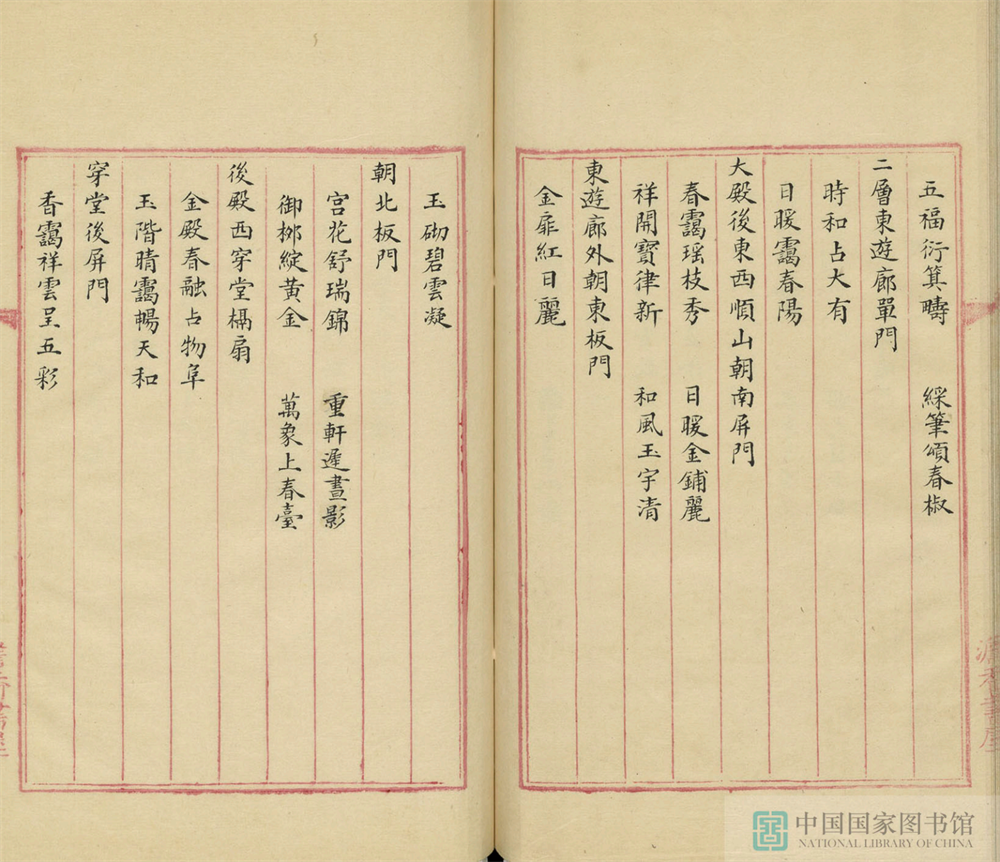 五福衍箕疇 綵筆頌春椒
二層東遊廊單門
時和占大有
日暖靄春陽
大殿後東西順山朝南屏門
春靄瑶枝秀 日暖金鋪麗
祥開寶律新 和風玉宇清
東遊廊外朝東板門
金扉紅日麗
玉砌碧雲凝
朝北板門
宮花舒瑞錦 重軒遲晝影
御栁綻黃金 萬象上春臺
後殿西穿堂槅扇
金殿春融占物阜
玉階晴靄暢天和
穿堂後屏門
香靄祥雲呈五彩
中国国家图书馆
NATIONAL LIBRARY OF CHINA